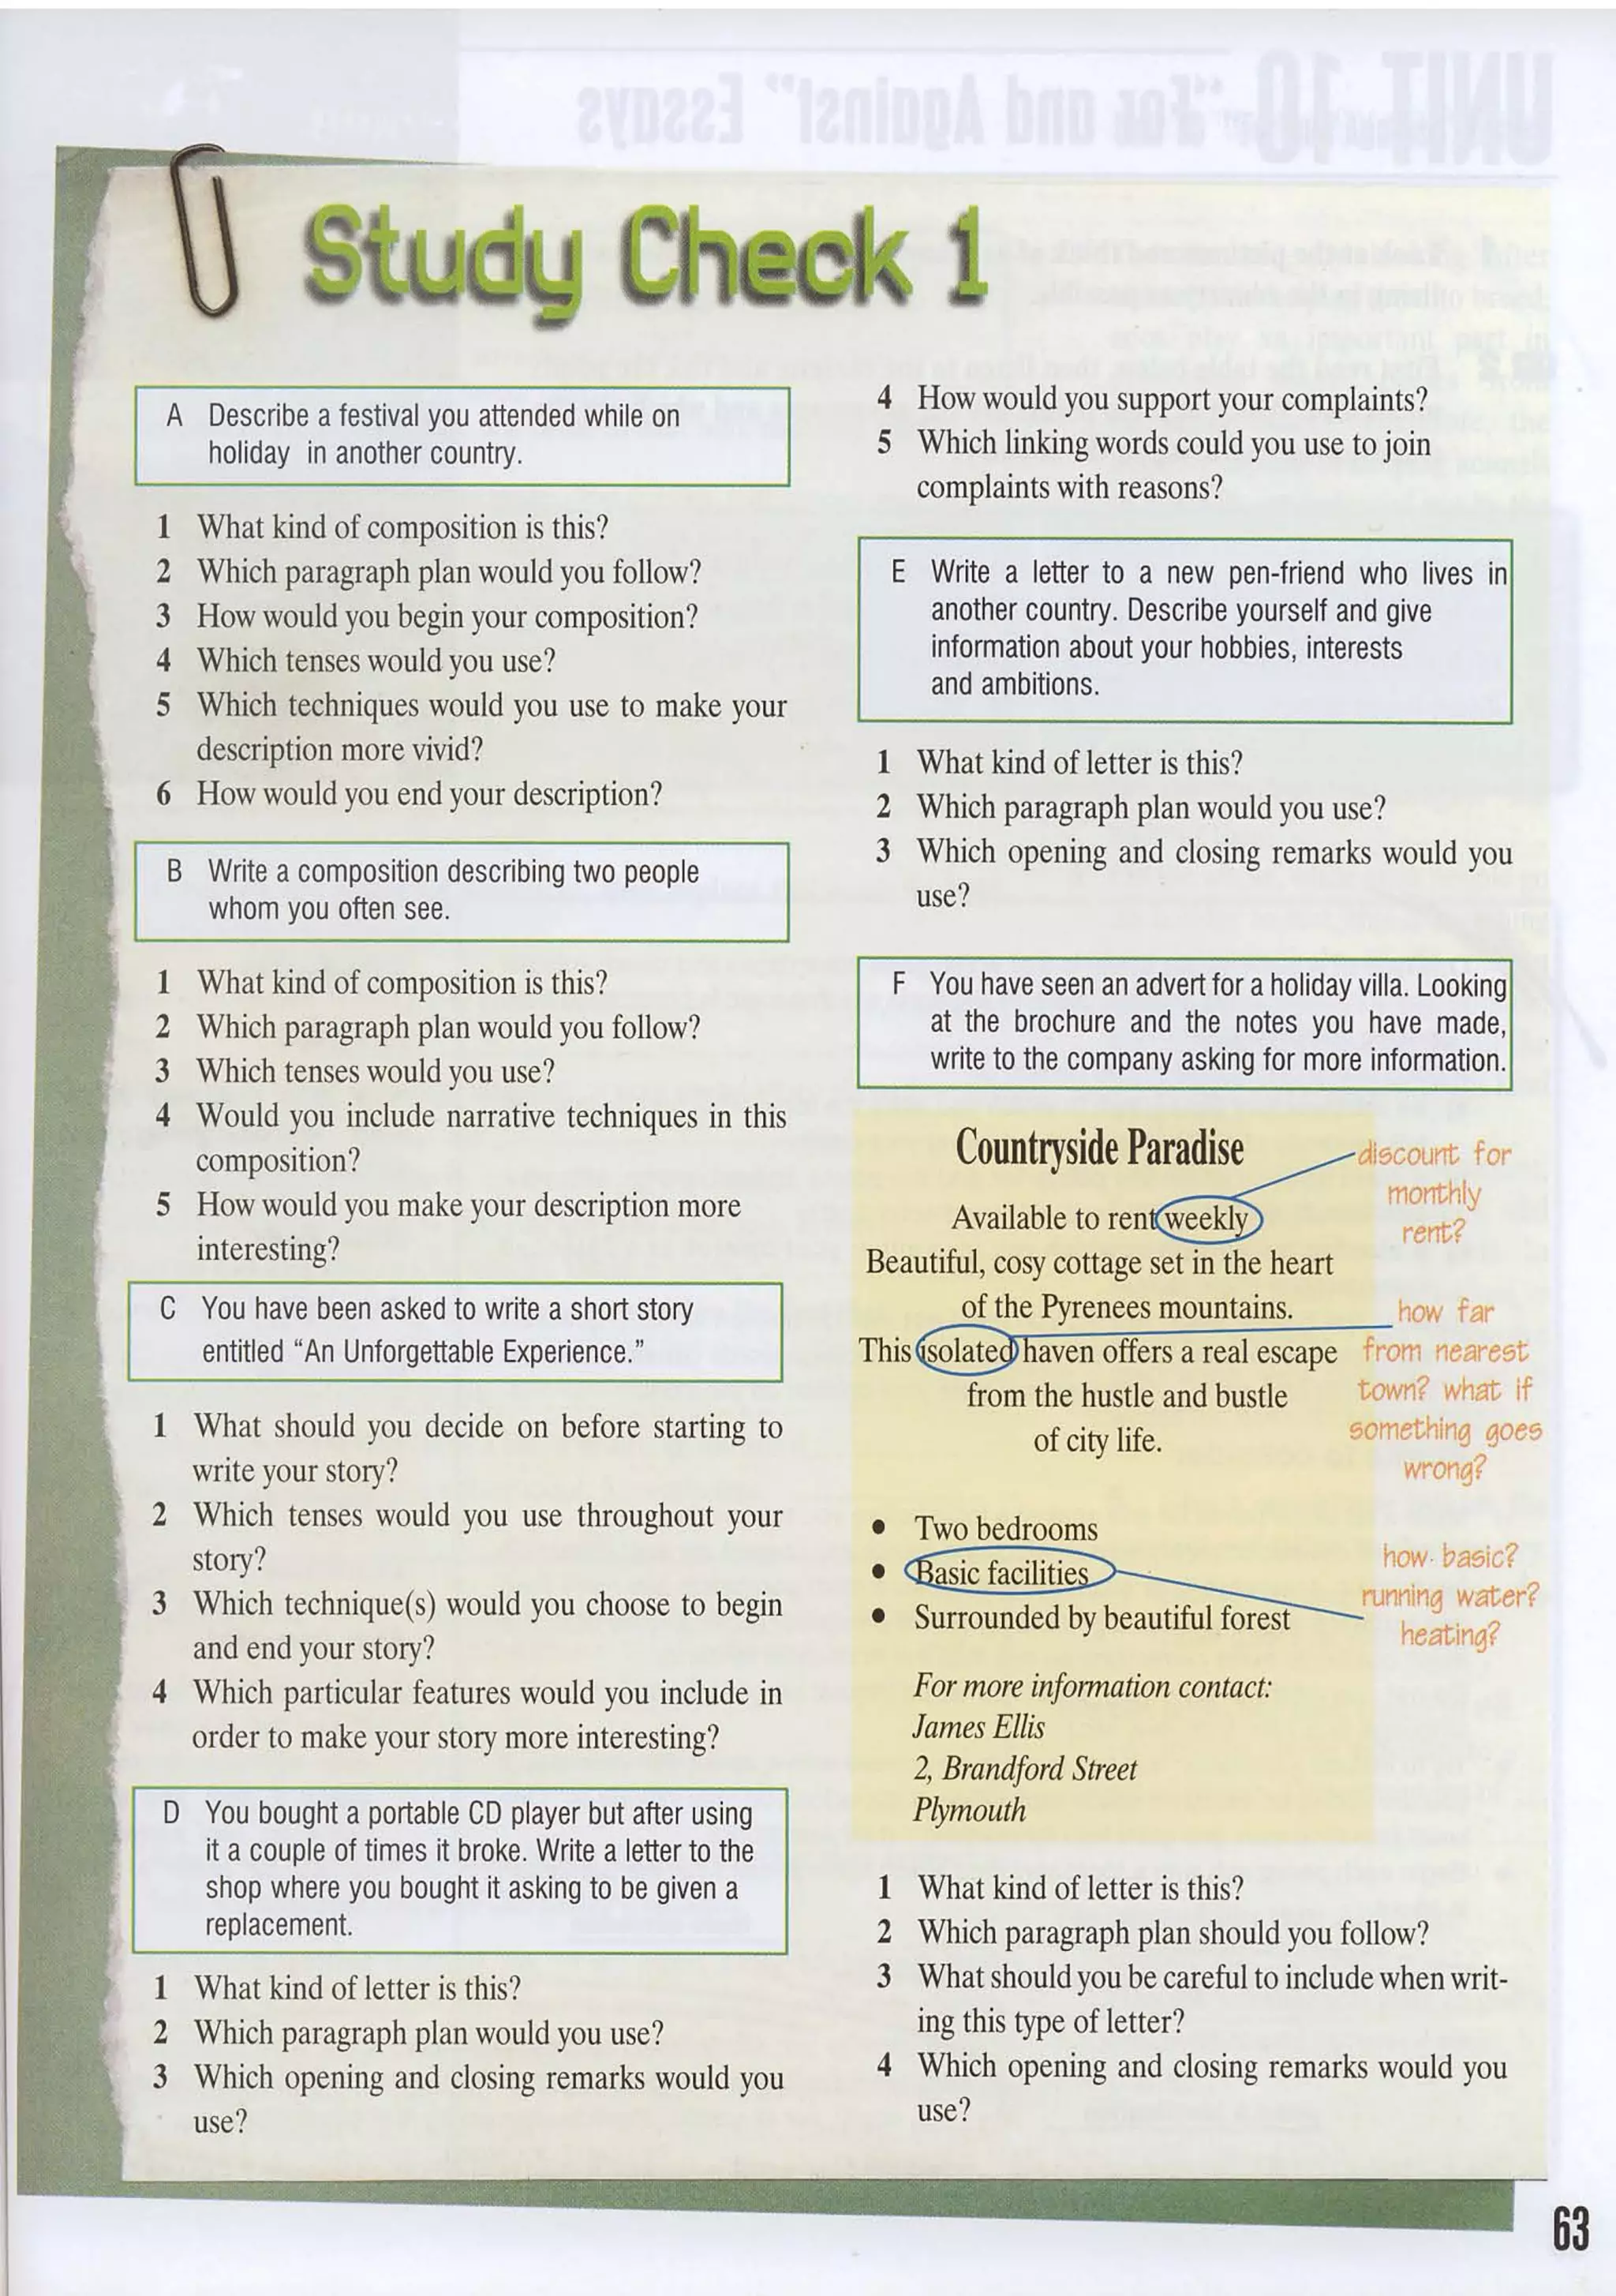 UNIT 10 "For and Against" Essays
Study Check 1
A Describe a festival you attended while on
holiday in another country.
1 What kind of composition is this?
2 Which paragraph plan would you follow?
3 How would you begin your composition?
4 Which tenses would you use?
5 Which techniques would you use to make your
description more vivid?
6 How would you end your description?
B Write a composition describing two people
whom you often see.
1 What kind of composition is this?
2 Which paragraph plan would you follow?
3 Which tenses would you use?
4 Would you include narrative techniques in this
composition?
5 How would you make your description more
interesting?
C You have been asked to write a short story
entitled “An Unforgettable Experience.”
1 What should you decide on before starting to
write your story?
2 Which tenses would you use throughout your
story?
3 Which technique(s) would you choose to begin
and end your story?
4 Which particular features would you include in
order to make your story more interesting?
D You bought a portable CD player but after using
it a couple of times it broke. Write a letter to the
shop where you bought it asking to be given a
replacement.
1 What kind of letter is this?
2 Which paragraph plan would you use?
3 Which opening and closing remarks would you
use?
4 How would you support your complaints?
5 Which linking words could you use to join
complaints with reasons?
E Write a letter to a new pen-friend who lives in
another country. Describe yourself and give
information about your hobbies, interests
and ambitions.
1 What kind of letter is this?
2 Which paragraph plan would you use?
3 Which opening and closing remarks would you
use?
F You have seen an advert for a holiday villa. Looking
at the brochure and the notes you have made,
write to the company asking for more information.
Countryside Paradise
Available to rent weekly
Beautiful, cosy cottage set in the heart
of the Pyrenees mountains.
This isolated haven offers a real escape
from the hustle and bustle
of city life.
• Two bedrooms
• Basic facilities
• Surrounded by beautiful forest
For more information contact:
James Ellis
2, Brandford Street
Plymouth
discount for
monthly
rent?
how far
from nearest
town? what if
something goes
wrong?
how basic?
running water?
heating?
1 What kind of letter is this?
2 Which paragraph plan should you follow?
3 What should you be careful to include when writ-
ing this type of letter?
4 Which opening and closing remarks would you
use?
63